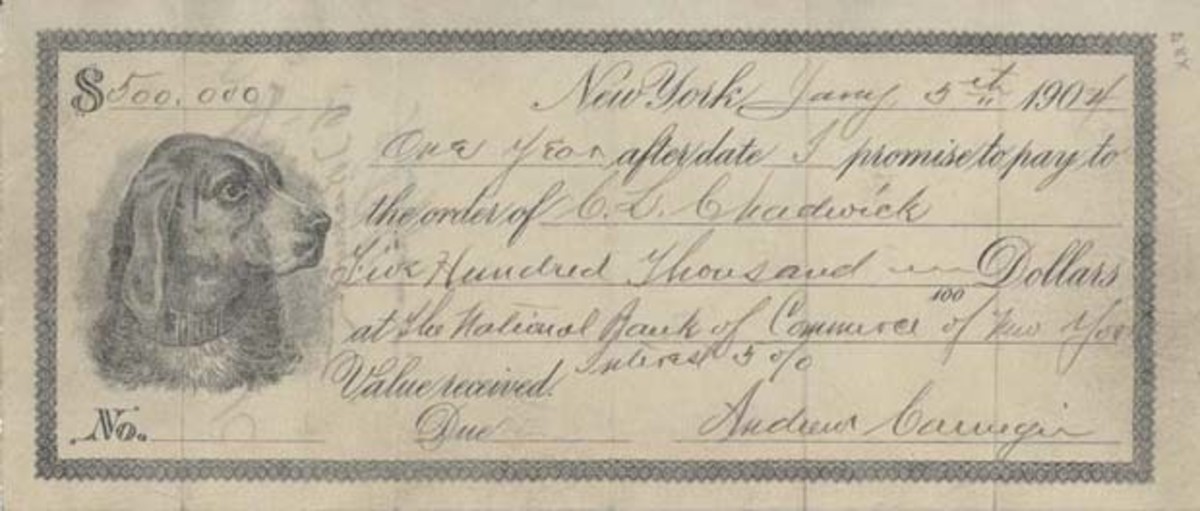 $500,000 New York Jany 5th 1904
One Year after date I promise to pay to
the order of C. L. Chadwick
Five Hundred Thousand Dollars
100
at the National Bank of Commerce of New Yor
Interest 5 %
Value received.
No. Due Andrew Carnegie